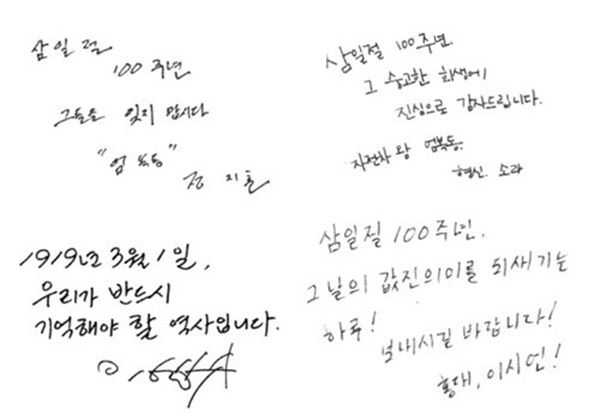 삼일절
100주년
그들을 잊지 맙시다
"엄복동"
정지훈
삼일절 100주년.
그 숭고한 희생에
진심으로 감사드립니다.
자전차왕 엄복동.
형신. 소라
1919년 3월 1일,
우리가 반드시
기억해야 할 역사입니다.
삼일절 100주년.
그 날의 값진의미를 되새기는
하루!
보내시길 바랍니다!
홍대, 이시언!